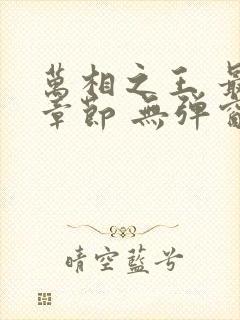 萬相之王 最
章節 無彈窗
晴空藍兮